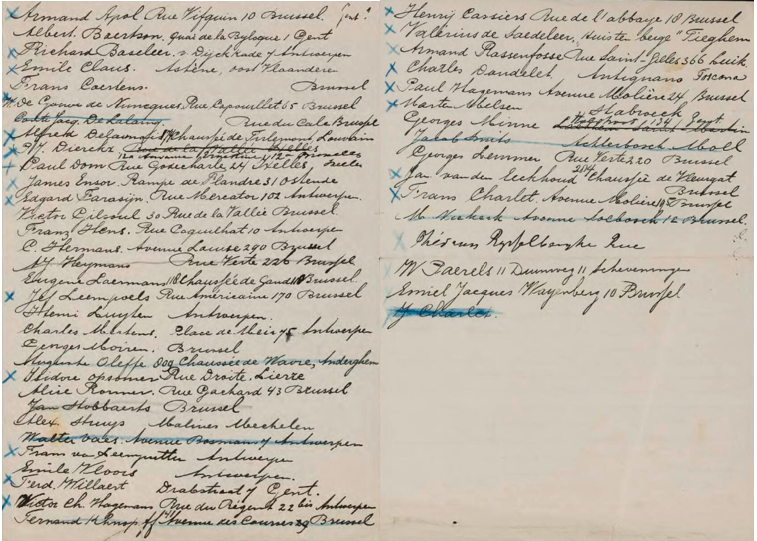 Armand Apol Rue Vifquin 10 Brussel.
Albert Baertson, Quai de la Byloque 1 Gent
Richard Baseleer. s Dijckkade 7 Antwerpen
Emile Claus. Astène, oost Vlaanderen
Frans Caertens. Brussel
H. De Groux de Nuncques, Rue Capouillet 65 Brussel
Rue du Cale Brussel
Alfred Delaunois Chaussée de Tirlemont Louvain
P. J. Dierckx Rue de la Vallée Ixelles
Paul Dom Rue Godecharle 24 Ixelles,
James Ensor. Rampe de Flandre 31 Ostende
Edgard Farasijn, Rue Mercator 102 Antwerpen.
Victor Gilsoul 30 Rue de la Vallée Brussel
Franz Hens. Rue Coquilhat 10 Antwerpen
C. Hermans. Avenue Louise 290 Brussel
Heymans Rue Verte 226 Brussel
Eugène Laermans 118 Chaussée de Gand 118 Brussel.
Jef Leempoels Rue Américaine 170 Brussel
Henri Luyten Antwerpen.
Charles Mertens. Place de Meir 75 Antwerpen
Georges Moiren. Brussel
Auguste Oleffe 809 Chaussée de Wavre, Auderghem
Isidore opsomer Rue Droite. Lierre
Alice Ronner. Rue Gachard 43 Brussel
Jan Stobbaerts Brussel
Alex. Struys Malines Mechelen
Walter Vaes. Avenue Bosmans 7 Antwerpen
Frans van Leemputten Antwerpen
Emile Vloors Antwerpen.
Ferd. Willaert Drabstraat 7 Gent.
Victor Ch. Hagemans Rue du Régent 22 bis Antwerpen
Fernand Khnopff Avenue des Courses 29 Brussel
Henry Cassiers Rue de l'abbaye 18 Brussel
Valérius de Saedeleer, "Tieghem
Armand Rassenfosse Rue Saint-Gilles 366 Luik
Charles Doudelet, Antignano Toscana
Paul Hagemans Avenue Molière 24 Brussel
Marten Melsen Stabroeck
Georges Minne Laethem Saint Martin
Jacob Smits Achterbosch Moll
Georges Lemmer Rue Verte 220 Brussel
Jan van den Eeckhoud Chaussée de Vleurgat Brussel
Frans Charlet, Avenue Molière Brussel
Avenue Solbosch 12 Brussel.
Théo van Rysselberghe Rue
W Paerels 11 Duinweg 11 Scheveningen
Emiel Jacques Wayenberg 10 Brussel
Charlet.